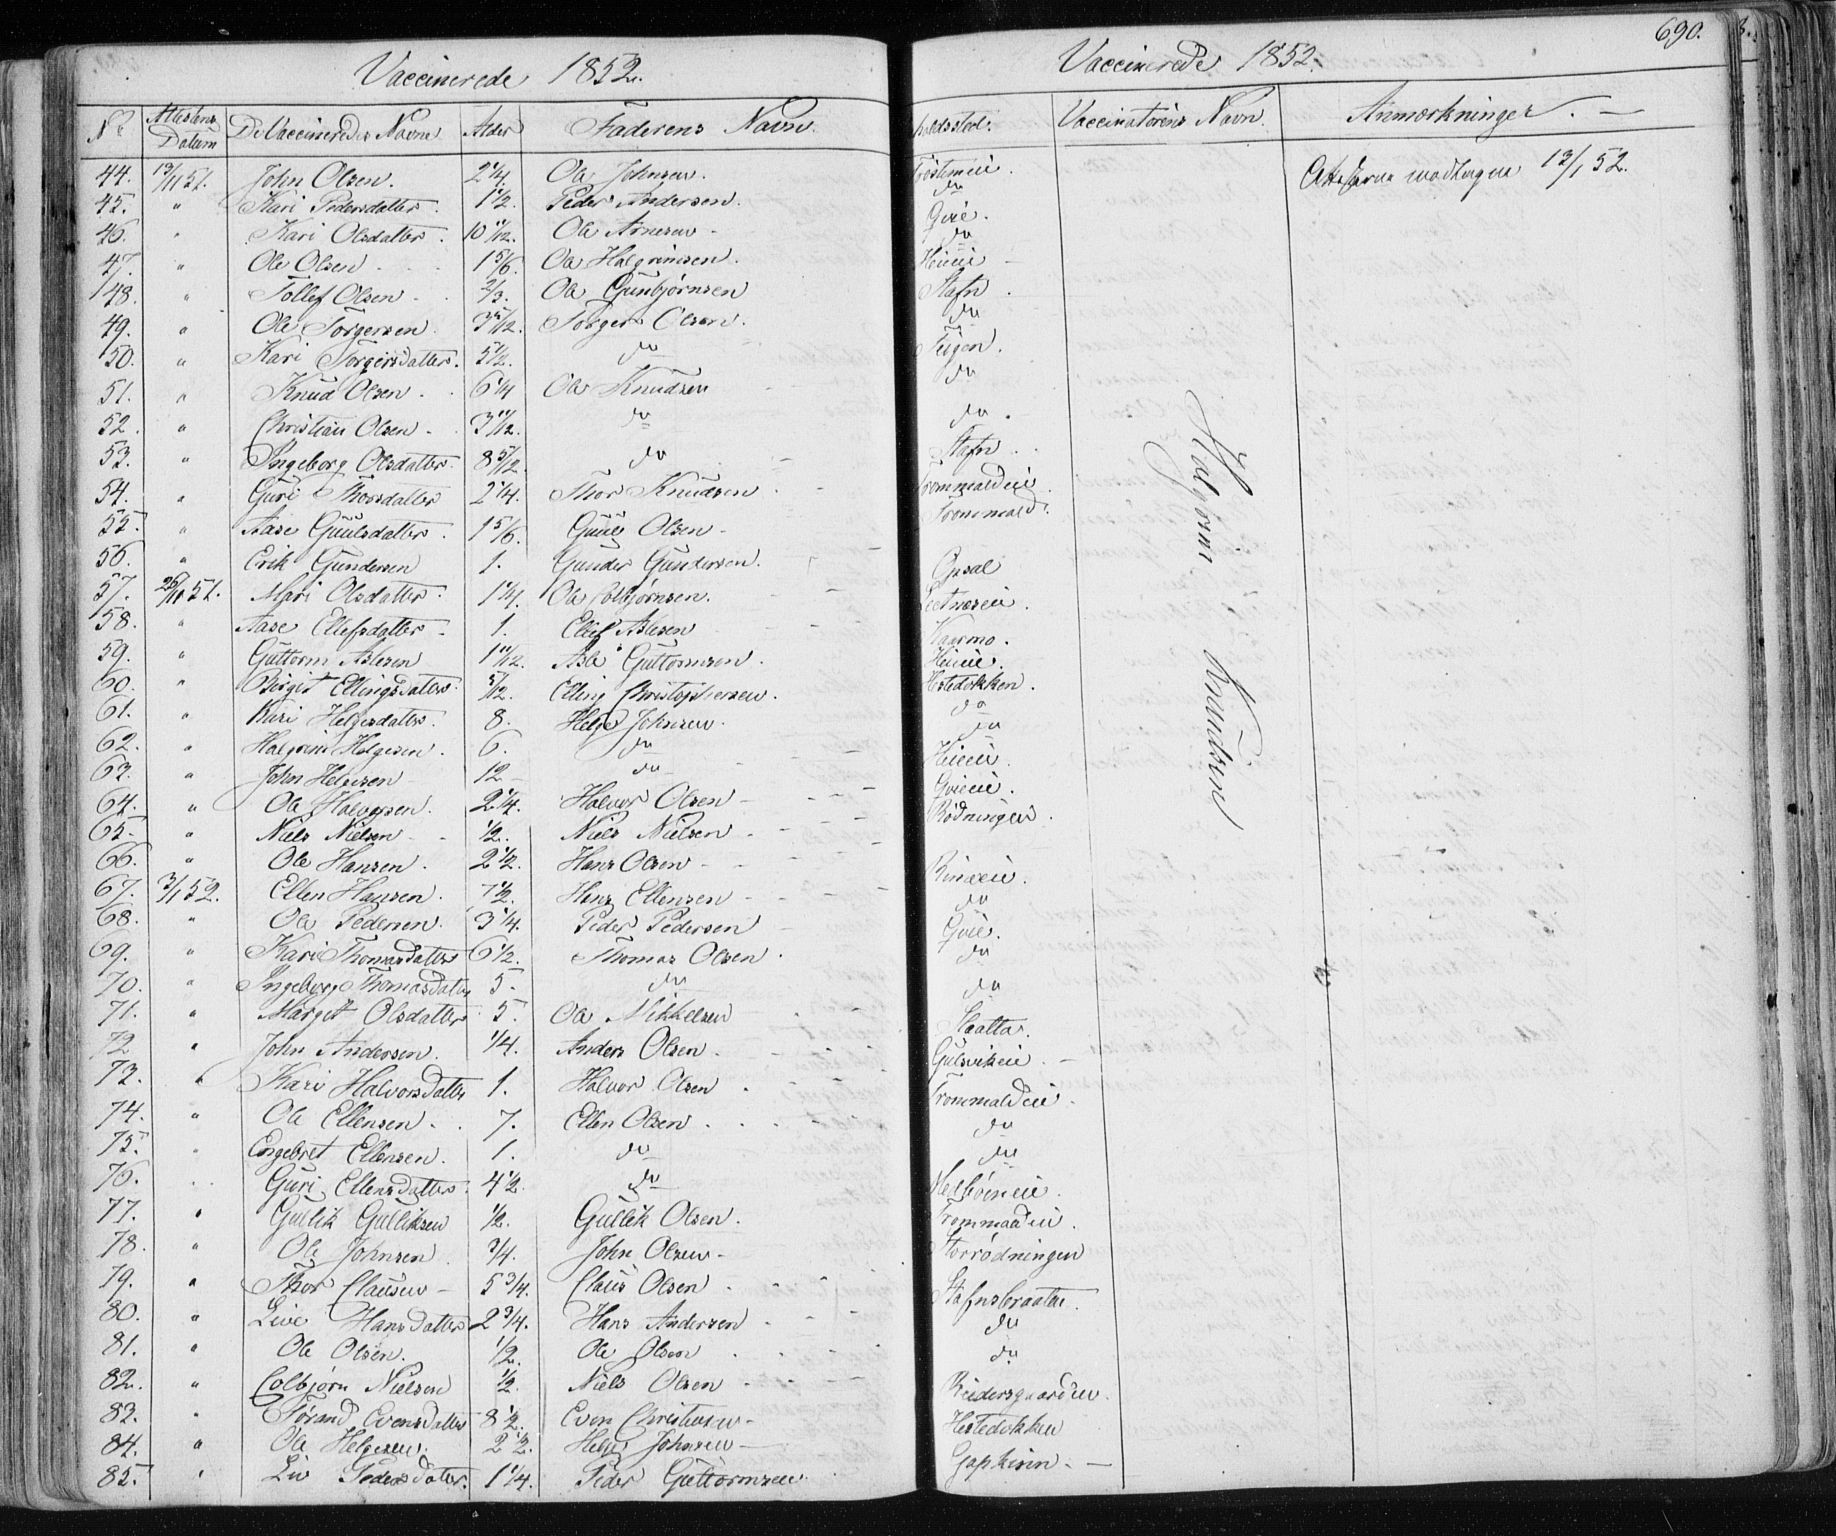 Vaccinerede 1852.
No Attestens Datum De Vaccineredes Navne Alder Faderens Navn.
44. 13/11 51. John Olsen. 2 1/4. Ole Johnsen.
45. " Kari Pedersdatter. 1 1/2. Peder Andersen.
46. " Kari Olsdatter. 10 11/12. Ole Arnesen -
47. " Ole Olsen 1 5/6. Ole Halgrimsen.
48. " Tollef Olsen 2/3. Ole Gunbjørnsen
49. " Ole Torgersen. Torger Olsen.
50. " Kari Torgersdatter. 5 1/2. do
51. " Knud Olsen. 6 1/4 Ole Knudsen
52. " Christian Olsen. 3 11/12. do
53. " Ingeborg Olsdatter. 8 5/12. do
54. " Guri Thorsdatter 2 1/4. Thor Knudsen
55. " Aase Guulsdatter. 1 5/6. Guul Olsen -
56. Erik Gundersen 1. Gunder Gundersen.
57. 51. Mari Olsdatter. 1 1/4. Ole Colbjørnsen.
58. " Aase Ellefsdatter 1. Ellef Aslesen
59. " Guttorm Aslesen 1 11/12. Asle Guttormsen.
60. " Birgit Ellingsdatter. Elling Christophersen.
61. " Kari Helgesdatter. 8. Helge Johnsen.
62. " Halgrim Helgesen. 6. do
63. " John Helgesen 12 - do
64. " Ole Halvorsen. 2 1/4. Halvor Olsen -
65. " Niels Nielsen 1/2. Niels Nielsen -
66. " Ole Hansen. 2 1/2. Hans Olsen -
67. 3/1 52. Ellen Hansen. 7 1/2. Hans Ellensen -
68. " Ole Pedersen. 3 1/4. Peder Pedersen
69. " Kari Thomasdatter 6 1/2. Thomas Olsen.
70. " Ingeborg Thomasdatter 5. do
71. " Margit Olsdatter 5. Ole Mikkelsen
72 " John Andersen. 1/4. Anders Olsen.
73. " Kari Halvorsdatter 1. Halvor Olsen
74. " Ole Ellensen. 7. Ellen Olsen
75. Engebret Ellensen. 1. do
76. Guri Ellensdatter. 4 1/2. do
77. " Gullik Gulliksen 1/2. Gullik Olsen.
78. " Ole Johnsen 3/4. John Olsen -
79. " Thor Clausen - 5 3/4. Claus Olsen
80. " Live Hansdatter 2 3/4. Hans Andersen
81. " Ole Olsen. 1/2. Ole Olsen
82. " Colbjørn Nielsen 1/2. Niels Olsen
83. " Evensdatter 8 1/2. Even Christensen -
84. " Ole Helgesen. 2 1/2. Helge Johnsen -
85. " Liv Pedersdatter. 1 1/4. Peder Guttormsen
690.
Vaccinerede 1852.
holdssted. Vaccinatørens Navn. Anmærkninger. -
Attesterne modtagne 13/1 52.
do
Gvie.
do
Heieie -
Stafn.
do
Teigen.
do
do.
Stafn
Trommaldeie
Trommald
Opsal
Kaarmo.
Heieie.
Hestedokken.
do
do
Heieie.
Gvieie.
Rødningen.
do
Gvie.
do
do
Gulsvikeie. -
Trommaldeie.
do
do
Trommaldeie.
Storrødningen
Stafnsbraaten.
do
do
Hestedokken
Halgrim Knudsen